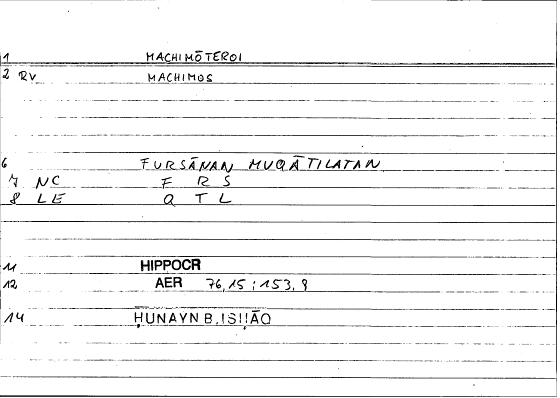 1 MACHIMŌTEROI
2 RV MACHIMOS
6 FURSĀNAN MUQĀTILATAN
7 NC F R S
8 LE Q T L
11 HIPPOCR
12 AER 76,15 ; 153,9
14 ḤUNAYN B. ISḤĀQ